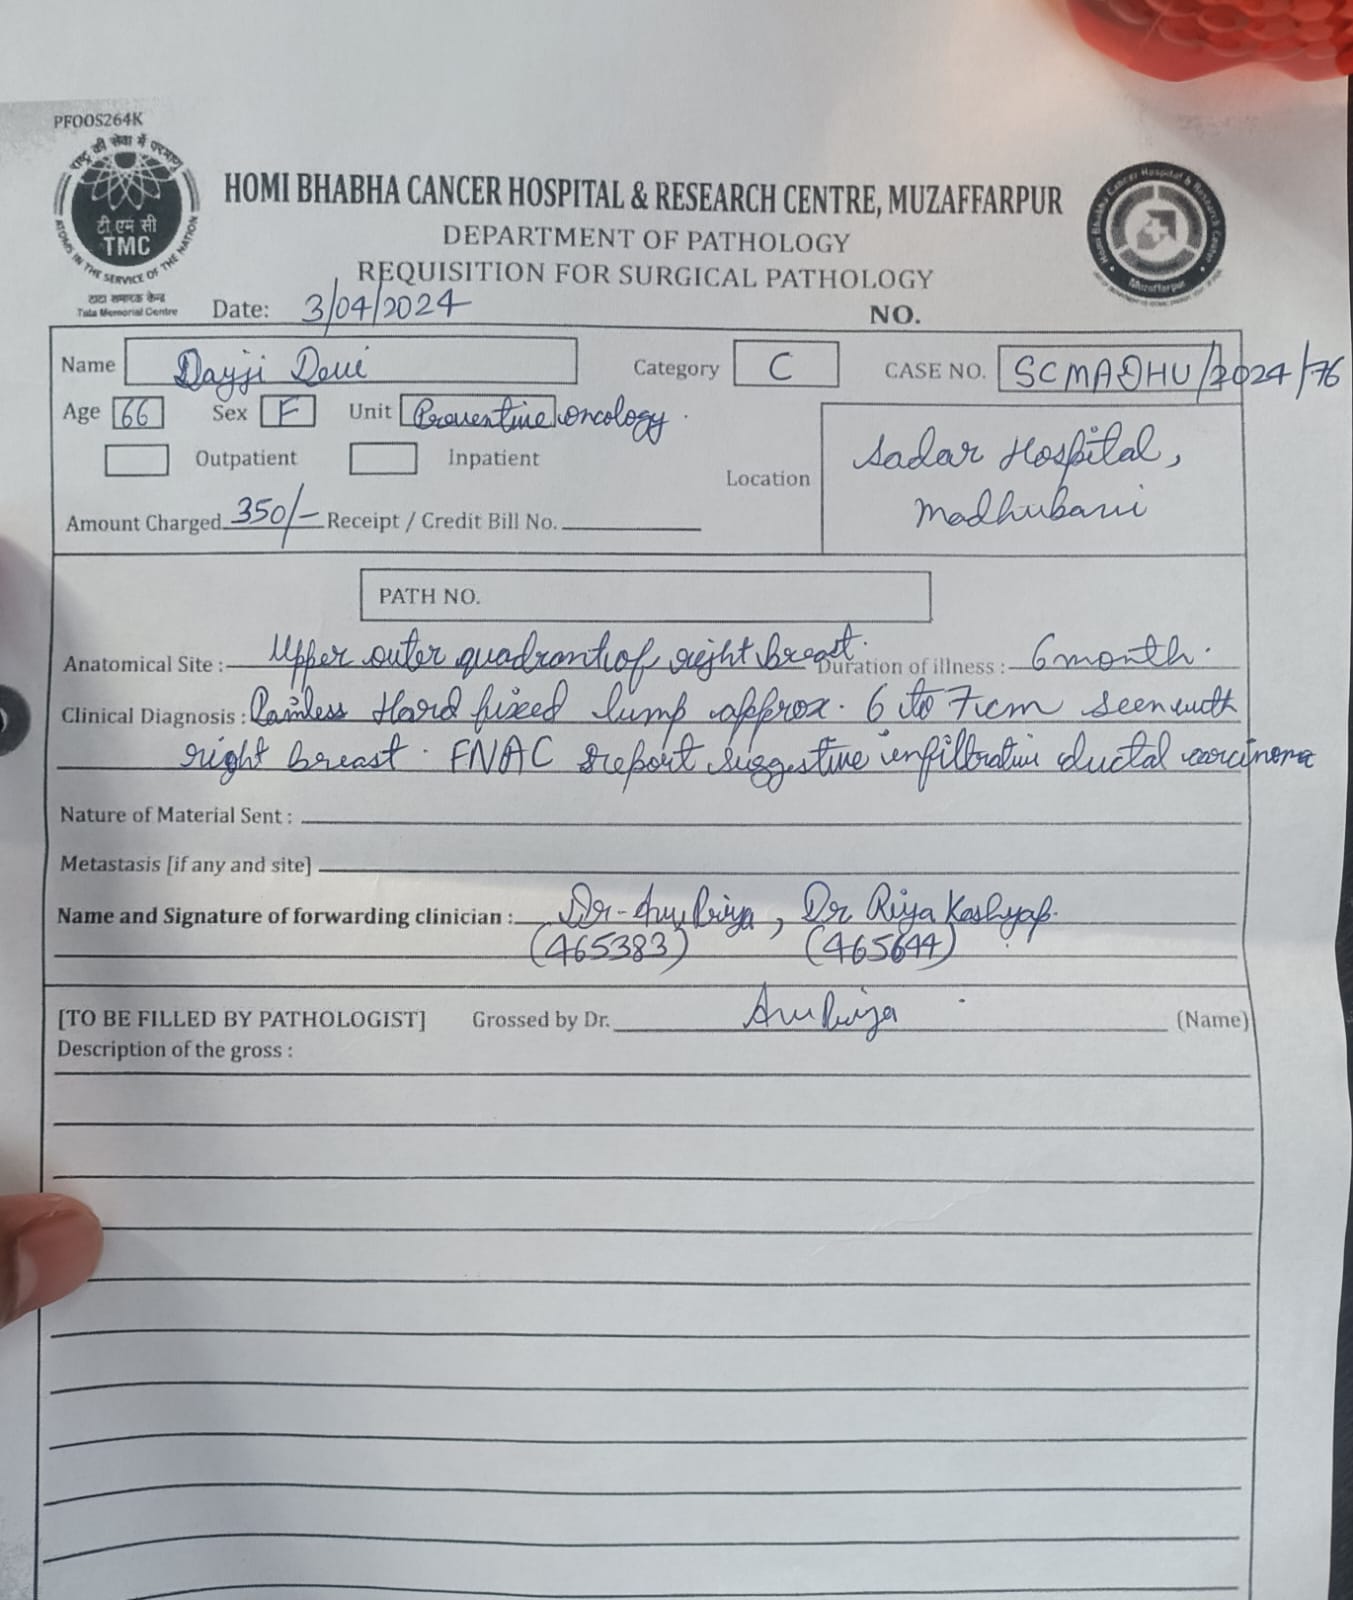 PFOOS264K
राष्ट्र की सेवा में परमाणु
टी एम सी
TMC
ATOMS IN THE SERVICE OF THE NATION
टाटा स्मारक केन्द्र
Tata Memorial Centre
HOMI BHABHA CANCER HOSPITAL & RESEARCH CENTRE, MUZAFFARPUR
Homi Bhabha Cancer Hospital & Research Centre
Muzaffarpur
DEPARTMENT OF PATHOLOGY
REQUISITION FOR SURGICAL PATHOLOGY
Date: 3/04/2024 NO.
Name Dayji Devi Category C CASE NO. SCMADHU/2024/76
Age 66 Sex F Unit Preventive oncology.
Outpatient Inpatient
Location Sadar Hospital,
Madhubani
Amount Charged 350/- Receipt / Credit Bill No.
PATH NO.
Anatomical Site :- Upper outer quadrant of right breast. Duration of illness :- 6 month.
Clinical Diagnosis : Painless Hard fixed lump approx. 6 to 7cm seen with
right breast. FNAC report suggestive infiltrative ductal carcinoma
Nature of Material Sent :
Metastasis [if any and site]
Name and Signature of forwarding clinician : Dr- Anupriya, Dr Riya Kashyap.
(465383) (465644)
[TO BE FILLED BY PATHOLOGIST] Grossed by Dr. Anupriya (Name)
Description of the gross :